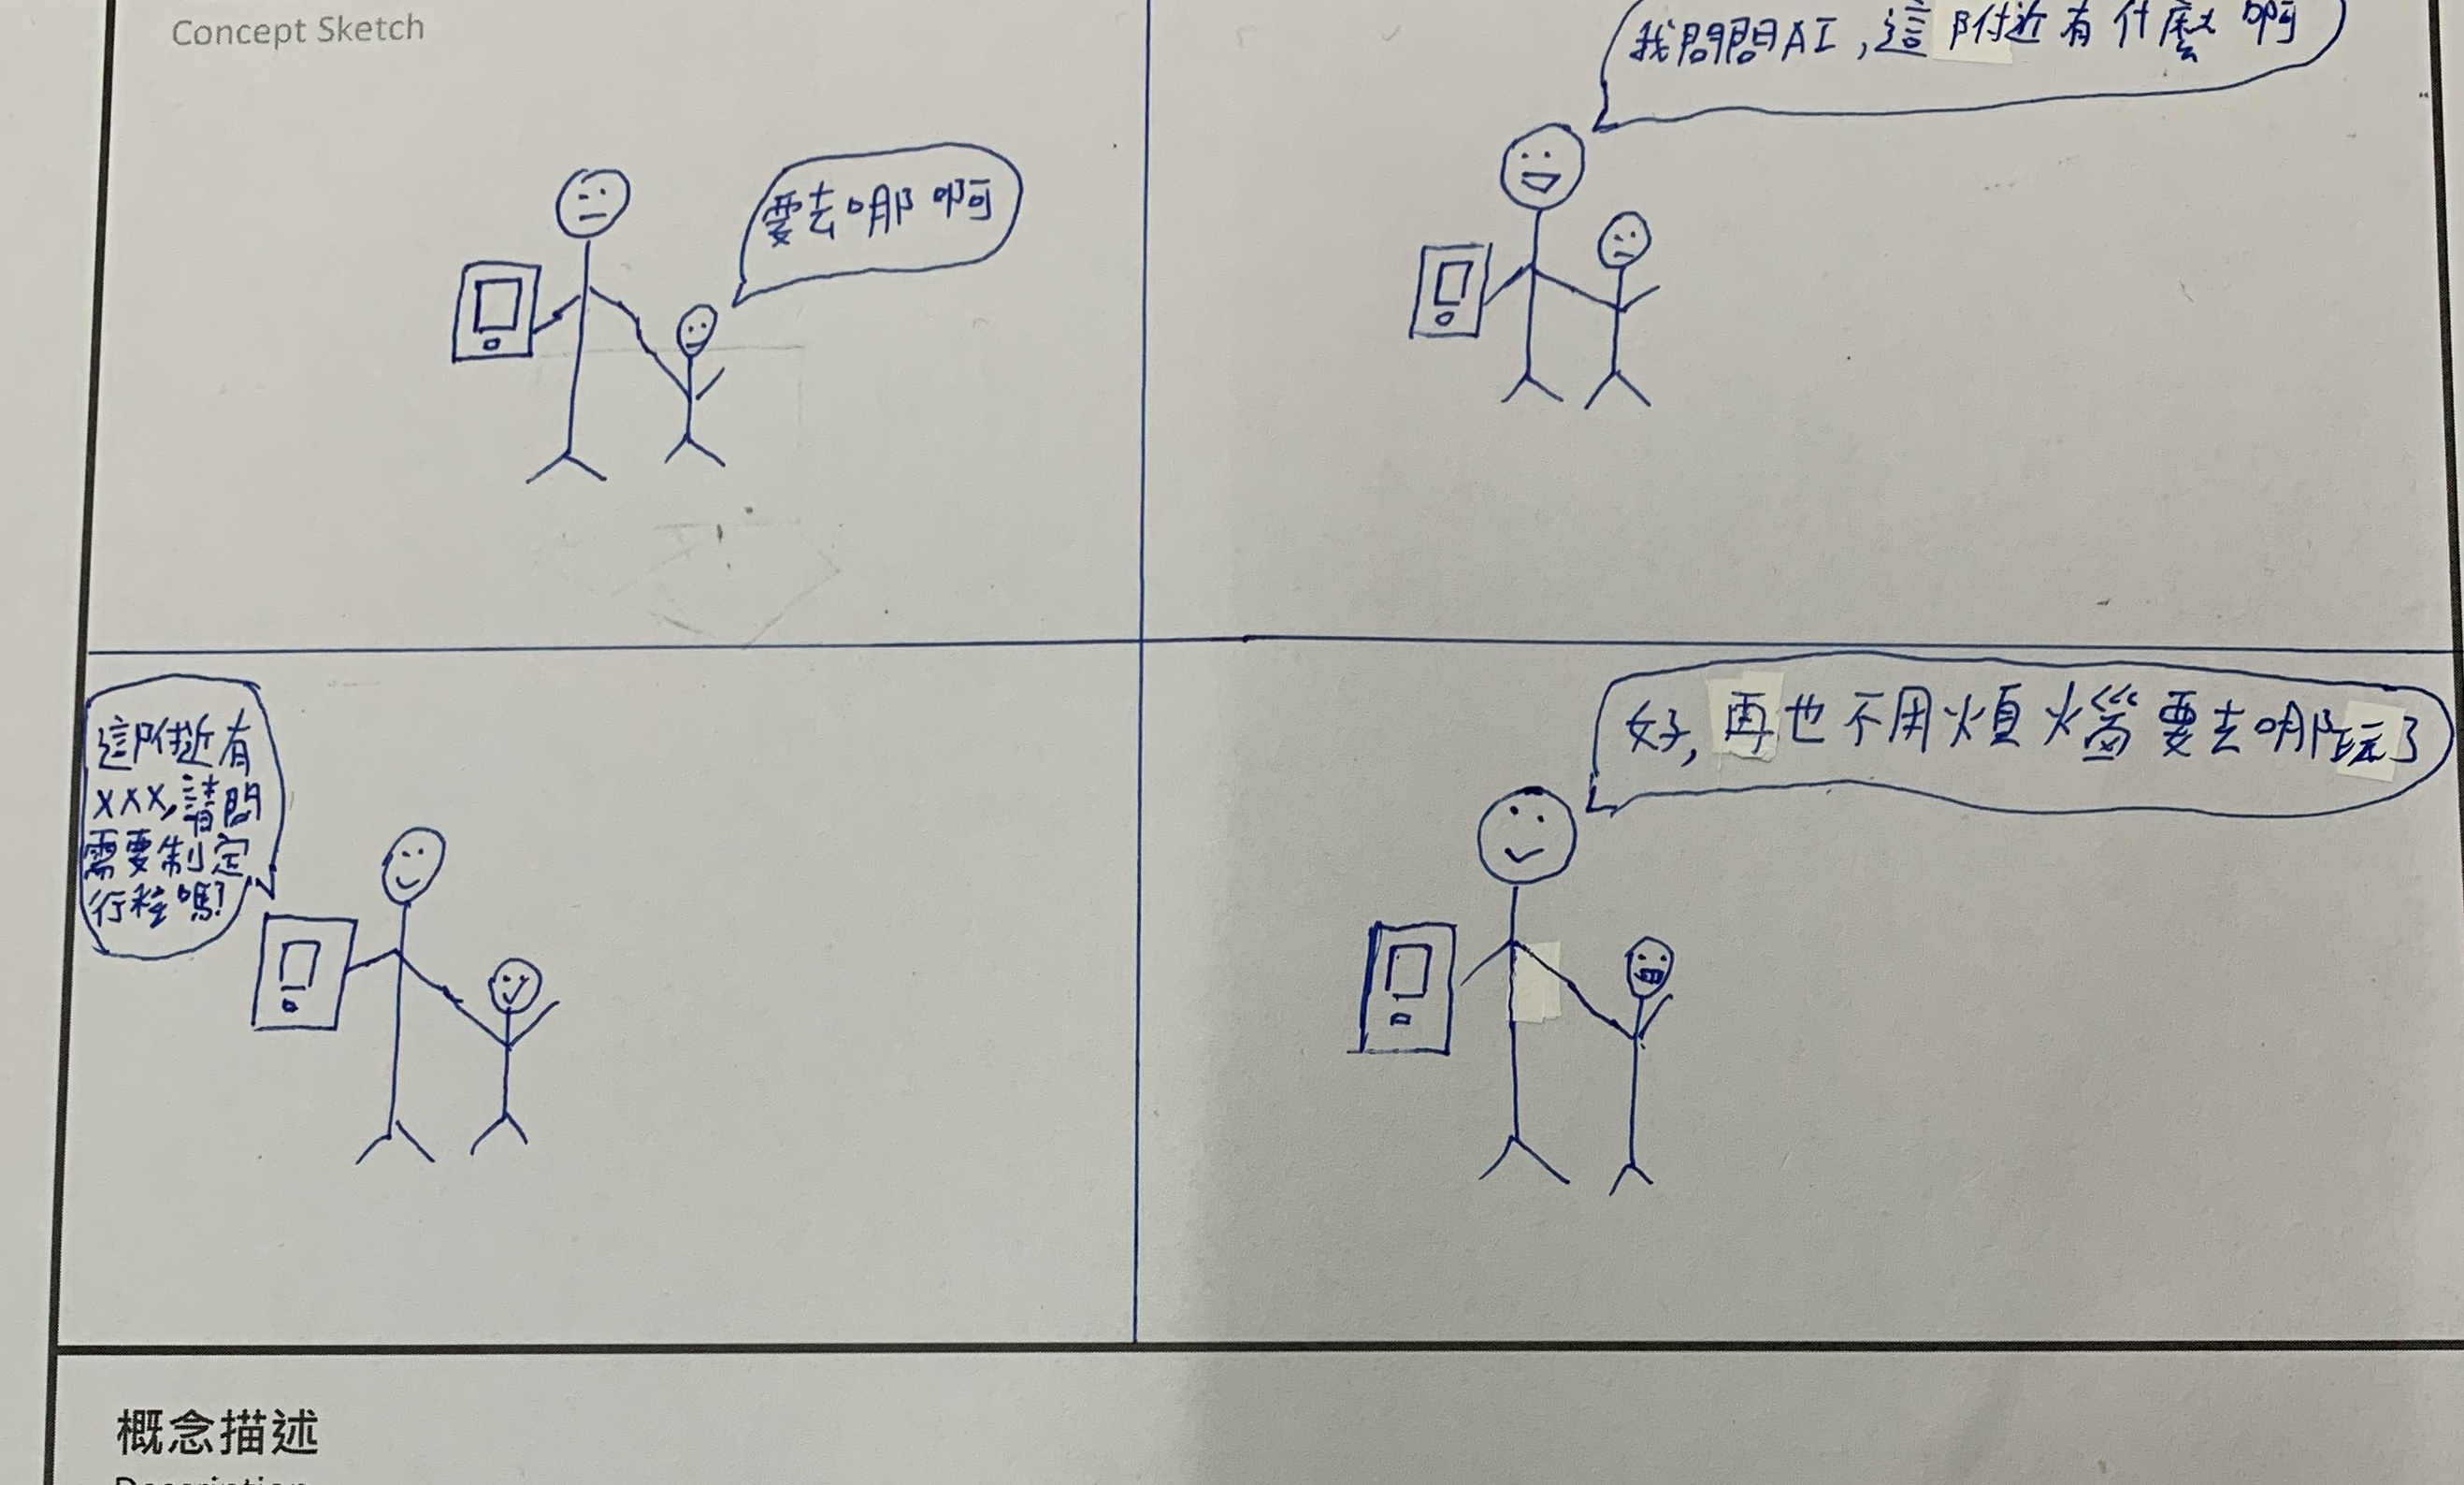 Concept Sketch
要去哪啊
我問問AI,這附近有什麼啊
這附近有
XXX,請問
需要制定
行程嗎?
好,再也不用煩惱要去哪玩了
概念描述
Description